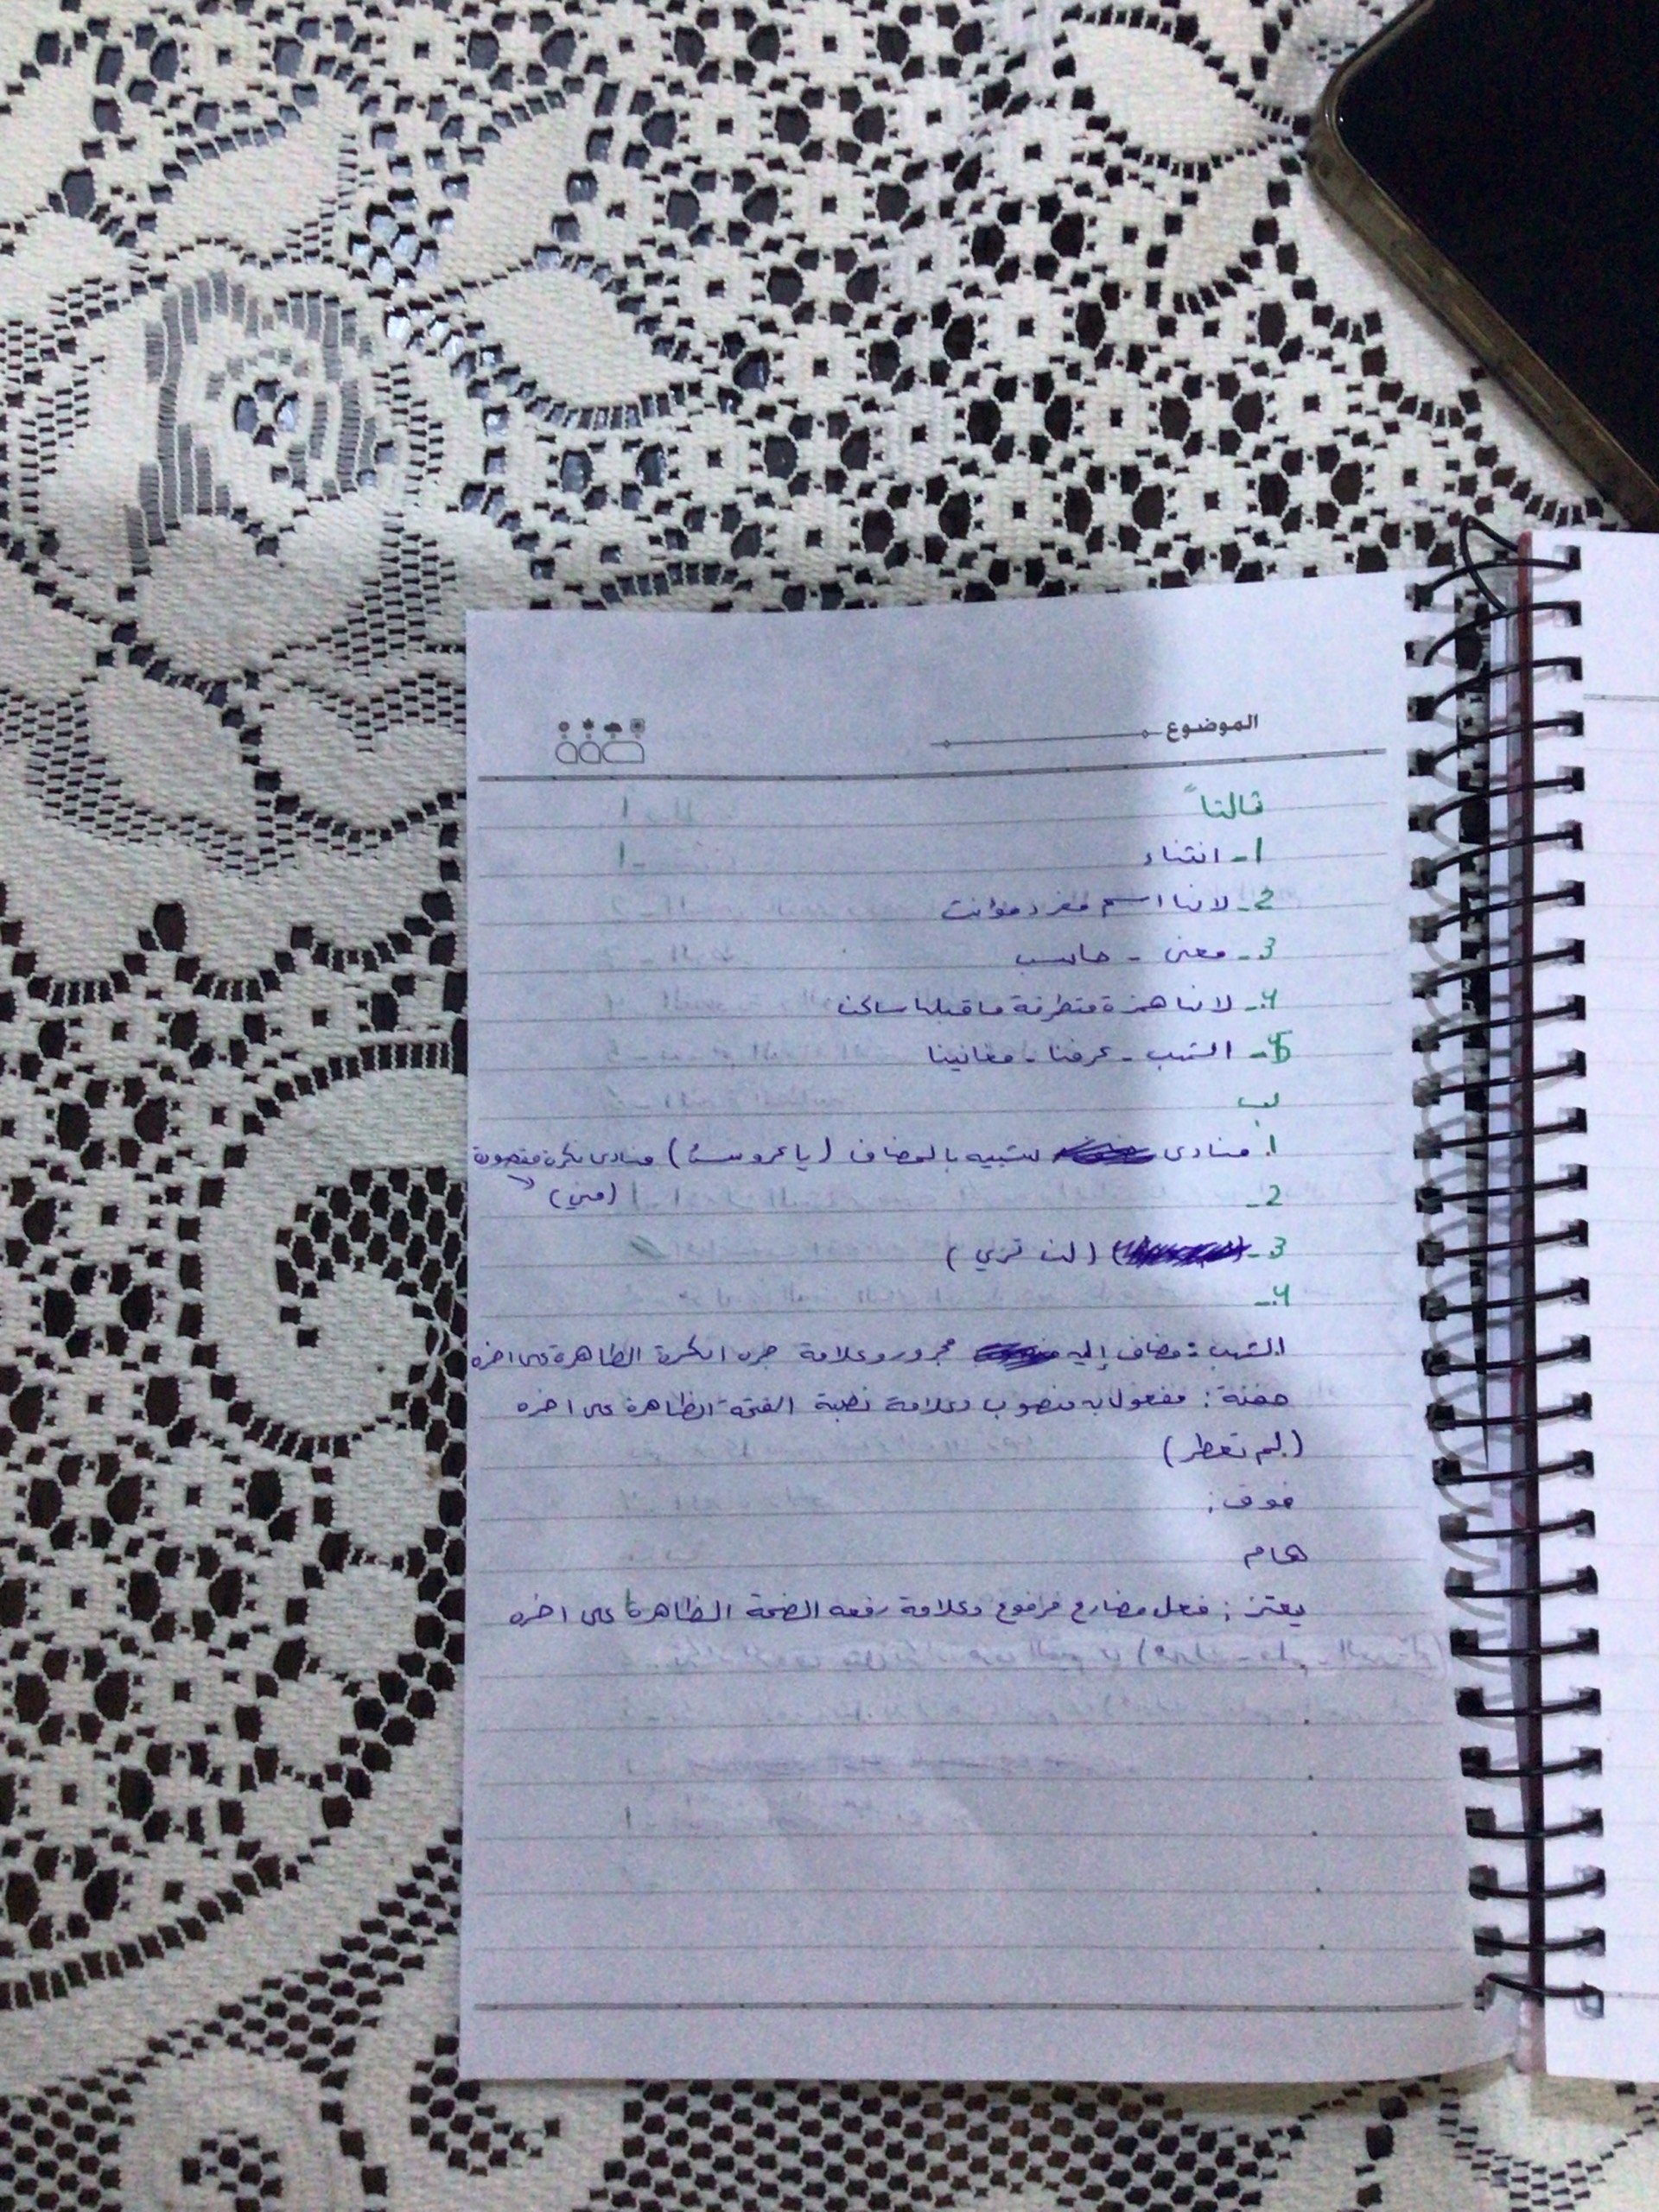 الموضوع
ثالثاً
1- انتشاء
2- لانها اسم مفرد مؤانث
3- معنى - حاسب
4- لانها همزة متطرفة ماقبلها ساكن
5- الشهب - عرفنا - مغانينا
ب
1. منادى شبيه بالمضاف (يا عروس) منادى نكرة مقصودة
2- (مني)
3- (لن تري)
4-
الشهب: مضاف إليه مجرور وعلامة جره الكسرة الظاهرة على اخره
حفنة: مفعول به منصوب وعلامة نصبة الفتحة الظاهرة على اخره
(لم تعطر)
فوق:
هام
يعتز: فعل مضارع مرفوع وعلامة رفعه الضمة الظاهرة على اخره